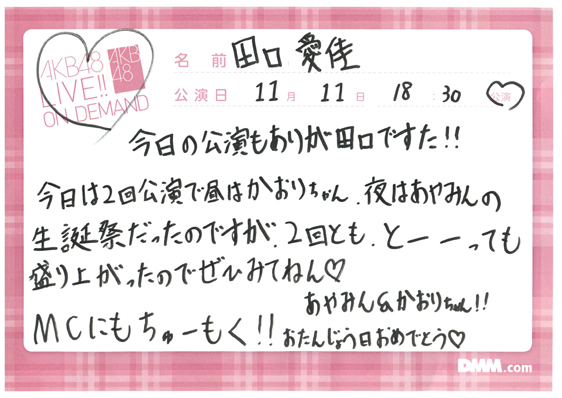 AKB48
LIVE!!
ON DEMAND
AKB
48
名前 田口 愛佳
公演日 11月 11日 18:30 公演
今日の公演もありが田口ですた!!
今日は2回公演で昼はかおりちゃん、夜はあやみんの
生誕祭だったのですが、2回とも、とーーっても
盛り上がったのでぜひみてねん♡
あやみん&かおりちゃん!!
MCにもちゅーもく!! おたんじょう日おめでとう♡
DMM.com